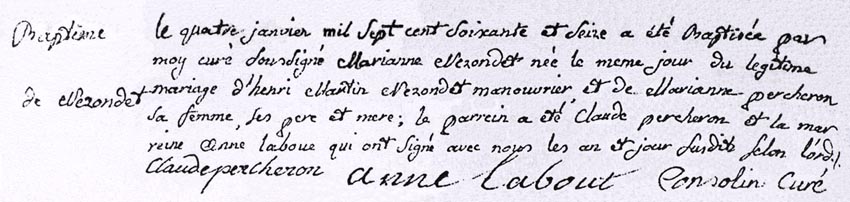 Baptême
de Nezondet
le quatre janvier mil sept cent soixante et seize a été Baptisée par
moy curè soussigné Marianne Nezondet née le meme jour du legitime
mariage d'henri Martin Nezondet manouvrier et de Marianne percheron
sa femme, ses pere et mere; le parrein a été Claude percheron et la mar
reine Anne laboue qui ont signé avec nous les an et jour susdits selon l'ord.
Claude percheron anne labout Consolin Curé